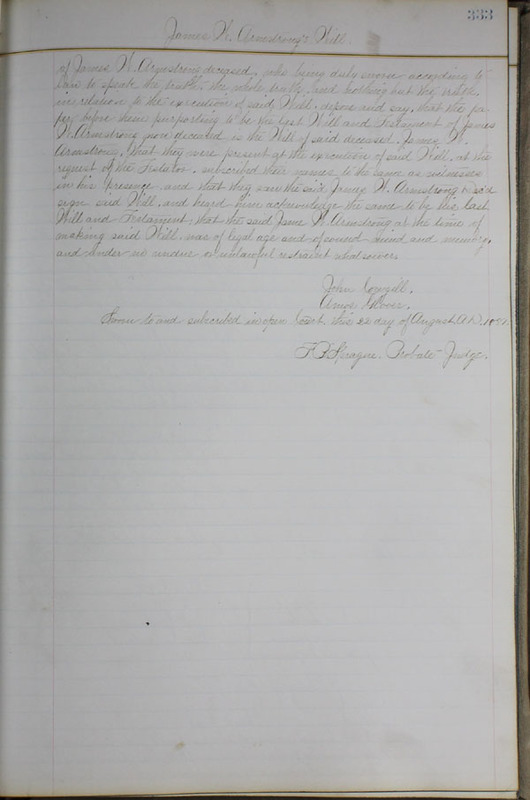 333
James W. Armstrong's Will.
of James W. Armstrong deceased, who being duly sworn according to
law to speak the truth, the whole truth, and nothing but the truth,
in relation to the execution of said Will, depose and say, that the pa-
per before them purporting to be the last Will and Testament of James
W. Armstrong now deceased is the Will of said deceased, James W.
Armstrong, that they were present at the execution of said Will, at the
request of the Testator, subscribed their names to the same as witnesses
in his presence, and that they saw the said James W. Armstrong
sign said Will, and heard him acknowledge the same to be his last
Will and Testament; that the said James W. Armstrong at the time of
making said Will, was of legal age and of sound mind and memory,
and under no undue or unlawful restraint whatsoever.
John
Amos
Sworn to and subscribed in open Court, this 22 day of August A.D.
F. Sprague. Probate Judge.